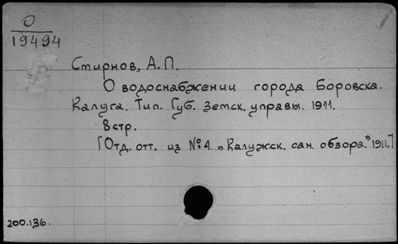 О
19494
Смирнов, А.П.
О водоснабжении города Боровска.
Калуга. Тип. Губ. Земск. управы. 1911.
8 стр.
[Отд. отт. из №4 „Калужск. сан. обзора" 1911.]
200.136.